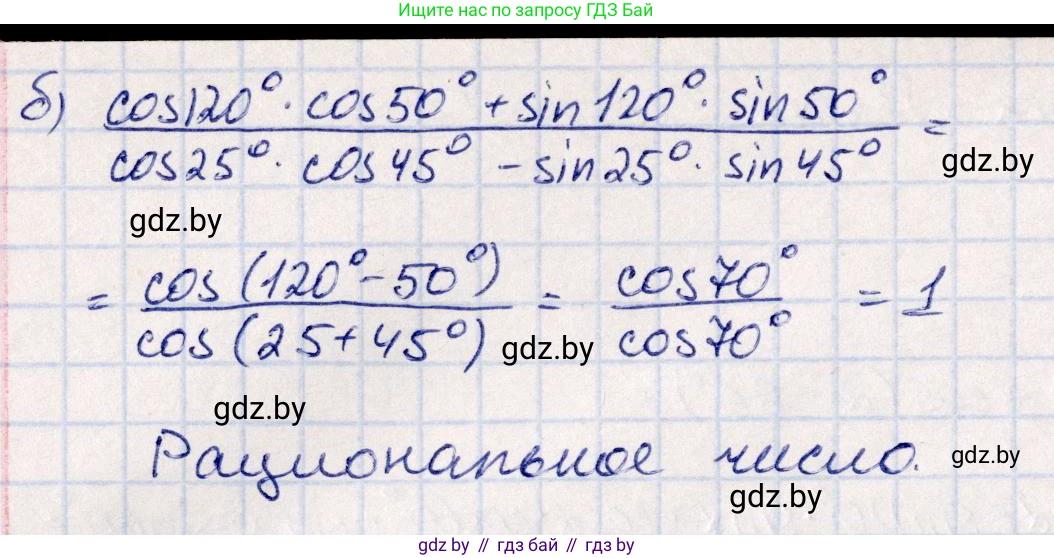 Ищите нас по запросу ГДЗ Бай
б) cos120° · cos50° + sin120° · sin50°
cos25° · cos45° - sin25° · sin45° =
gdz.by
gdz.by
= cos(120° - 50°) = cos70° = 1
cos(25 + 45°) cos70°
gdz.by
gdz.by
Рациональное число.
gdz.by
gdz.by
gdz by // гдз бай // gdz by